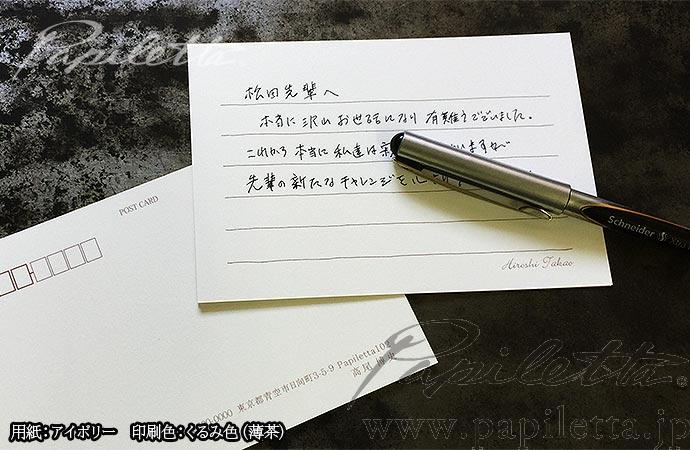 Papiletta
松田先輩へ
本当に沢山お世話になり 有難うございました。
これから 本当に 私達は
先輩の新たなチャレンジを心
Schneider
Hiroshi Takao
POST CARD
0-0000 東京都青空市日向町3-5-9 Papiletta102
高尾博史
Papiletta.
www.papiletta.jp
用紙:アイボリー 印刷色:くるみ色(薄茶)